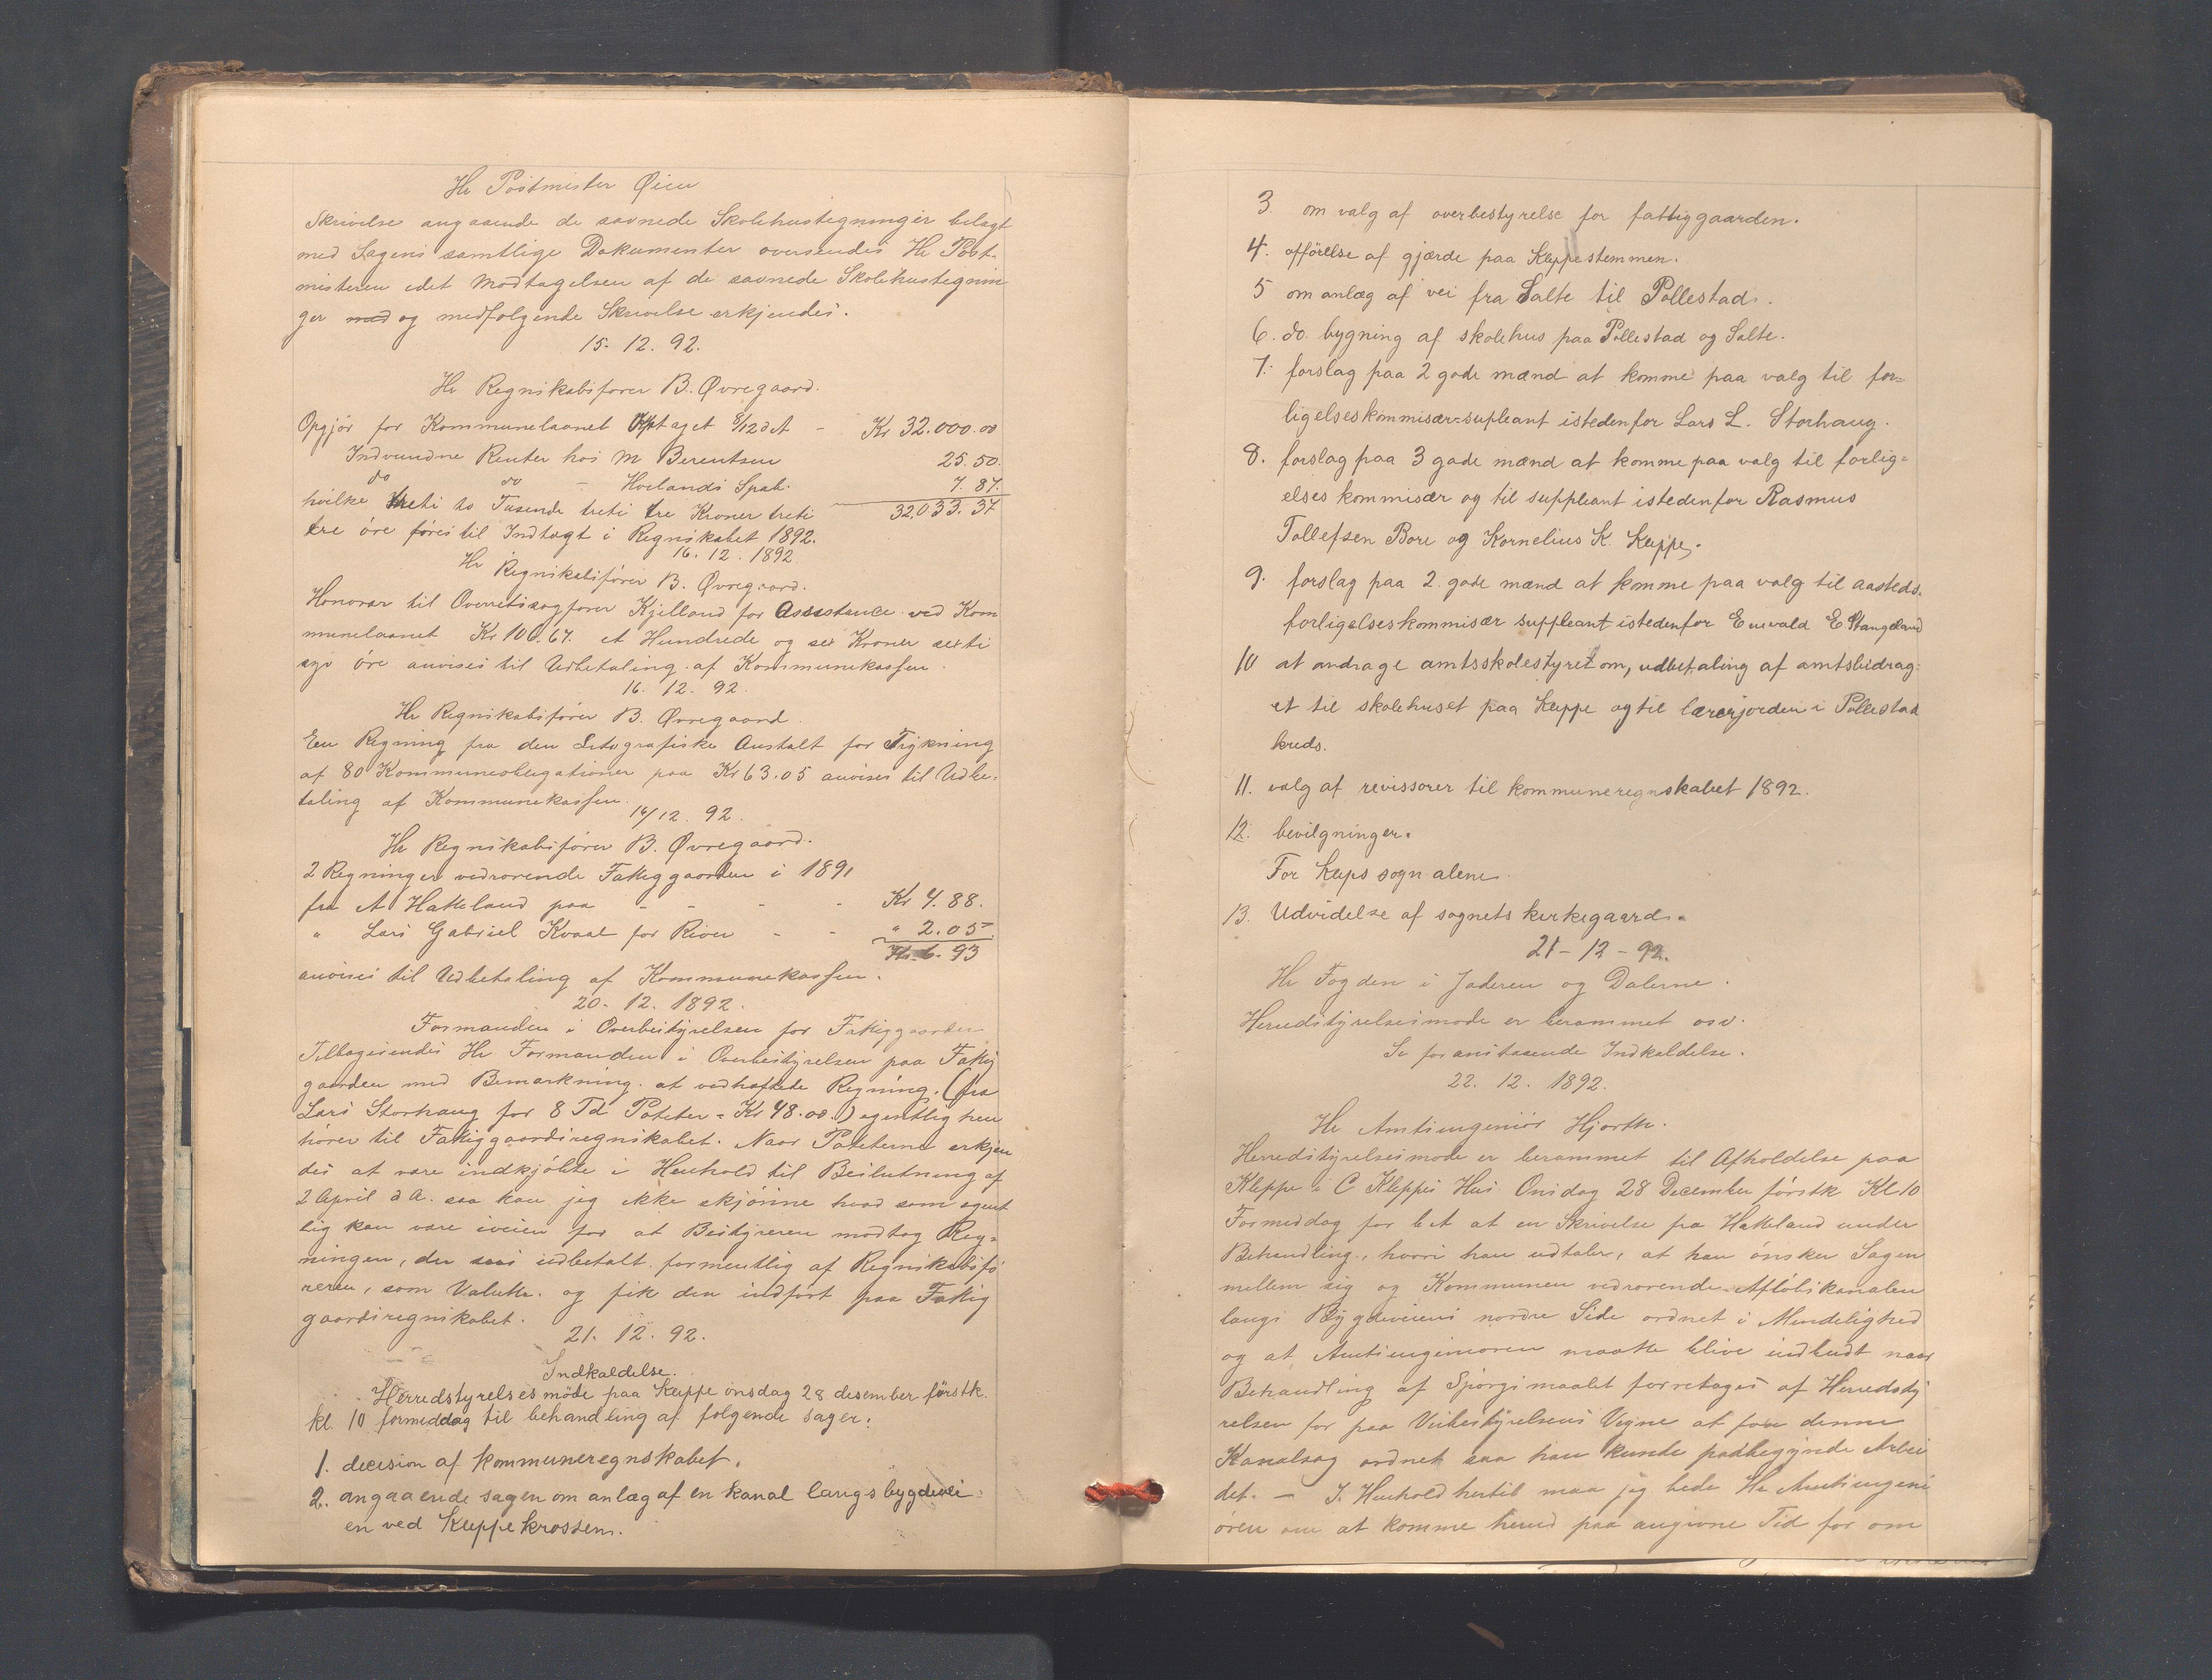 Hr Postmister Øien
Skrivelse angaaende de savnede Skolehustegninger belagt
med Sagens samtlige Dokumenter oversendes Hr Post-
misteren idet Modtagelsen af de savnede Skolehustegnin
ger med og medfølgende Skrivelse erkjendes.
15. 12. 92.
Hr Regnskabsfører B. Øvregaard.
Opgjör for Kommunelaanet Optaget 8/12 dA - Kr 32.000.00
Indvundne Renter hos M Berentsen 25.50.
do do - Hoilands Spab. 7.87.
hvilke treti to Tusende treti tre Kroner treti 32,033.37
tre öre föres til Indtægt i Regnskabet 1892.
16. 12. 1892.
Hr Regnskabsfører B. Øvregaard.
Honorar til Overretssagfører Kjelland for Assistance ved Kom
munelaanet Kr 106.67. et Hundrede og sex Kroner sexti
syv öre anvises til Udbetaling af Kommunekassen.
16. 12. 92.
Hr Regnskabsfører B. Øvregaard.
Een Regning fra den Litografiske Anstalt for Trykning
af 80 Kommuneobligationer paa Kr 63.05 anvises til Udbe-
taling af Kommunekassen.
16/12. 92.
Hr Regnskabsfører B. Øvregaard.
2 Regninger vedrørende Fattiggaarden i 1891
fra A Hatteland paa - - - - Kr 4.88.
" Lars Gabriel Kvaal for River - - " 2.05
Kr 6.93
anvises til Udbetaling af Kommunekassen.
20. 12. 1892.
Formanden i Overbestyrelsen for Fattiggaarden
Tilbagesendes Hr Formanden i Overbestyrelsen paa Fattig
gaarden med Bemærkning at vedhæftede Regning. (fra
Lars Storhaug for 8 Td Poteter = Kr 48.00.) egentlig hen
hører til Fattiggaardsregnskabet. Naar Poteterne erkjen
des at være indkjöbte i Henhold til Beslutning af
2 April d A. saa kan jeg ikke skjönne hvad som egent
lig kan være iveien for at Bestyreren modtog Reg-
ningen, der udbetalt formentlig af Regnskabsfö
reren, som Valuta og fik den indført paa Fattig
gaardsregnskabet.
21. 12. 92.
Indkaldelse.
Herredstyrelsesmöde paa Kleppe onsdag 28 desember förstk.
kl. 10 formiddag til behandling af folgende sager:
1. decision af kommuneregnskabet.
2. angaaende sagen om anlæg af en kanal langs bygdevei-
en ved Kleppekrossen.
3. om valg af overbestyrelse for fattiggaarden.
4. opförelse af gjærde paa Kleppestemmen.
5 om anlæg af vei fra Salte til Pollestad.
6. do. bygning af skolehus paa Pollestad og Salte.
7. forslag paa 2 gode mænd at komme paa valg til for-
ligelseskommisær=supleant istedenfor Lars L. Storhaug.
8. forslag paa 3 gode mænd at komme paa valg til forlig-
elses kommisær og til suppleant istedenfor Rasmus
Tollefsen Bore og Kornelius K. Kleppe.
9. forslag paa 2 gode mænd at komme paa valg til aasteds-
forligelseskommisær suppleant istedenfor Enevald E. Stangeland
10 at andrage amtsskolestyret om, udbetaling af amtsbidrag-
et til skolehuset paa Kleppe og til lærerjorden i Pollestad
kreds.
11. valg af revissorer til kommuneregnskabet 1892.
12. bevilgninger.
For Kleps sogn alene.
13. Udvidelse af sognets kirkegaard.
21-12-92.
Hr Fogden i Jæderen og Dalerne.
Herredstyrelsesmøde er berammet osv.
Se foranstaaende Indkaldelse.
22. 12. 1892.
Hr Amtsingeniör Hjorth.
Herredstyrelsesmøde er berammet til Afholdelse paa
Kleppe i C Kleppes Hus Onsdag 28 December förstk Kl 10
Formiddag for bl A at en Skrivelse fra Hatteland under
Behandling, hvori han udtaler, at han önsker Sagen
mellem sig og Kommunen vedrørende Aflöbskanalen
langs Bygdeveiens nordre Side ordnet i Mindelighed
og at Amtsingeniøren maatte blive indbudt naar
Behandling af Spørgsmaalet foretages af Herredsty
relsen for paa Veibestyrelsens Vegne at faa denne
Kanalsag ordnet saa han kunde paabegynde Arbei
det. - I Henhold hertil maa jeg bede Hr Amtsingeni
ören om at komme herud paa angivne Tid for om